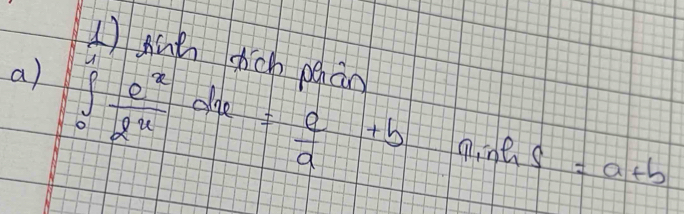 1) Tính tích phân
a) ∫₀¹ e^x / 2^x dx = e/a + b Tính S = a+b